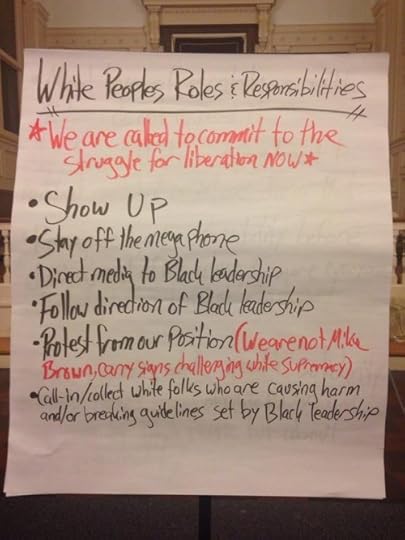 White Peoples Roles & Responsibilities
*We are called to commit to the
struggle for liberation NOW*
•Show Up
•Stay off the megaphone
•Direct media to Black leadership
•Follow direction of Black leadership
•Protest from our Position (We are not Mike
Brown, carry signs challenging white supremacy)
•Call-in/collect white folks who are causing harm
and/or breaking guidelines set by Black leadership